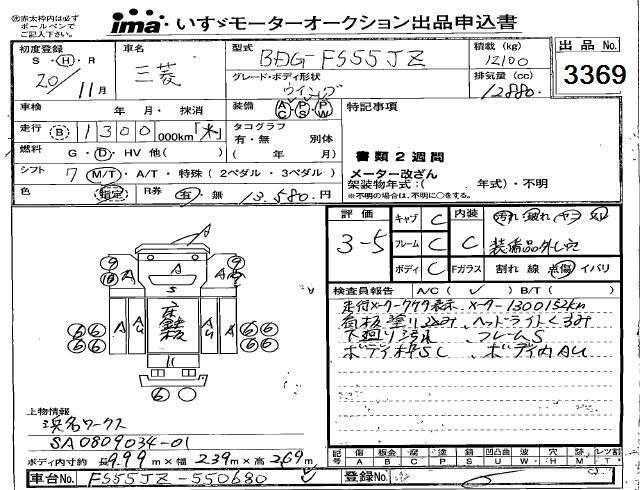 ※赤太枠内は必ず
ボールペンで
ご記入ください。
ima いすゞモーターオークション出品申込書
初度登録
S・H・R
20/11月
車名
三菱
型式
BDG-FS55JZ
グレード・ボディ形状
ウイング
積載 (kg)
12100
排気量 (cc)
12880
出品 No.
3369
車検 年 月・ 抹消
装備 AC PS PW
特記事項
走行 B 1300 000km「米」
タコグラフ
有・無 別体
( 年 )
書類2週間
メーター改ざん
架装物年式:( 年式)・不明
※不明の場合は、不明に○をする。
燃料 G・D・HV 他( )
シフト 7 M/T・A/T・特殊(2ペダル・3ペダル)
色 指定 R券 有 無 13,580円
評価
3-5
キャブ C
フレーム C
ボディ C
内装
C
汚れ 破れ
装備品外し穴
Fガラス 割れ 線 点傷 イバリ
検査員報告 A/C( ✓ ) B/T( )
メーター1300152km
看板塗り込み、ヘッドライトくるみ
下廻り汚れ、フレームS
ボディ枠SC、ボディ内AU
上物情報
浜名ワークス
SA0809034-01
ボディ内寸約 長9.99m×幅2.39m×高2.69m
車台No. FS55JZ-550680
登録No.
記 傷 板金 腐 塗 錆 凹凸曲 波 穴 × レツ割
号 A B C P S U W H M T